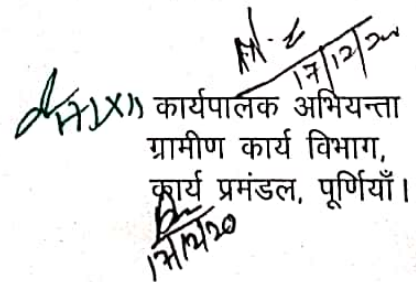 17/12/20
17/XII कार्यपालक अभियन्ता
ग्रामीण कार्य विभाग,
कार्य प्रमंडल, पूर्णियाँ।
17/12/20